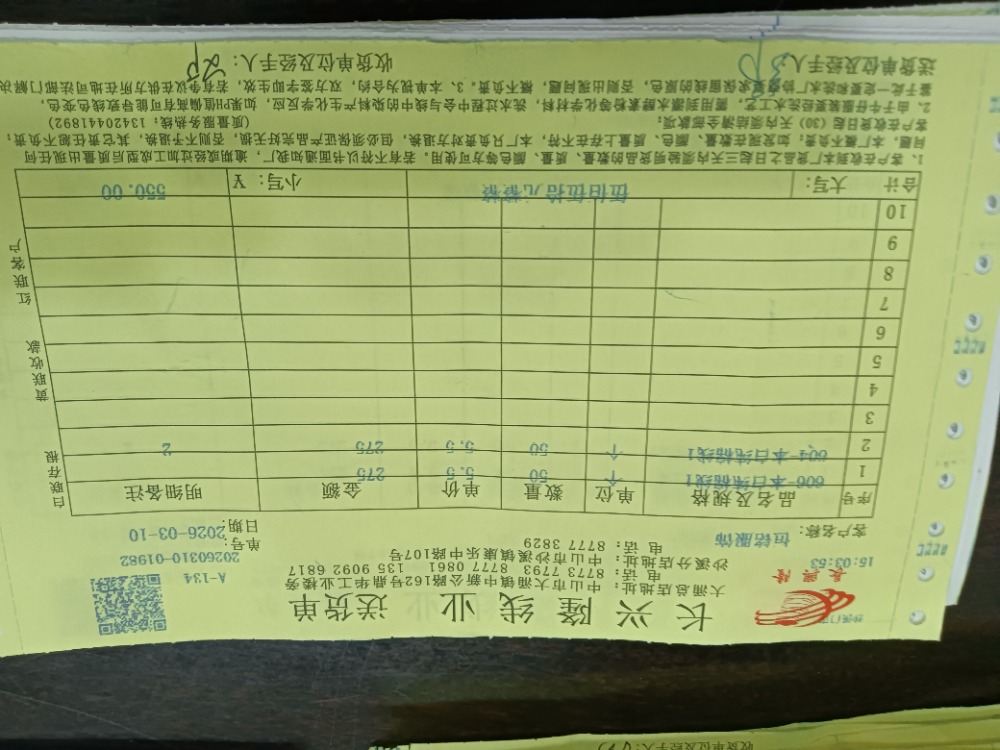 长兴隆线业 送货单
大涌总店地址：中山市大涌镇中新公路162号鼎华工业楼务
电话：8773 7793 8777 0861 135 9092 6817
沙溪分店地址：中山市沙溪镇康乐中路107号
电话：8777 3829
长兴隆
A-134
15:03:53
单号：20260310-01982
客户名称：恒铭服饰
日期：2026-03-10
序号 品名及规格 单位 数量 单价 金额 明细备注
1 606-本白纯棉线1 个 50 5.5 275
2 604-本白纯棉线1 个 50 5.5 275 2
3
4
5
6
7
8
9
10
合计 大写： 伍佰伍拾元整 小写：¥ 550.00
白联存根
黄联收款
红联客户
1、客户在收到本厂货品之日起三天内须验明货品的数量、质量、颜色等方可使用。若有不符以书面通知我厂，逾期或经过加工成型后质量出现任何
问题，本厂概不负责；如发现在数量、颜色、质量上存在不符，本厂只负责对方退换，但必须保证产品完好无损，否则不予退换，其它责任恕不负责；
客户在收货日起（30）天内须结清全部款项；
（质量服务热线：13420441892）
2、由于牛仔服装要经洗水工艺，需用到漂水酵素粉等化学材料，洗水过程中会与线中的染料产生化学反应，如果PH值偏高有可能导致线色变色，
鉴于此一定要和洗水厂协商要求保留线的原色，否则出现问题，概不负责。3、本单视为合约，双方签字即生效，若有争议在供方所在地司法部门解决
送货单位及经手人：
收货单位及经手人：
收货单位及经手人：